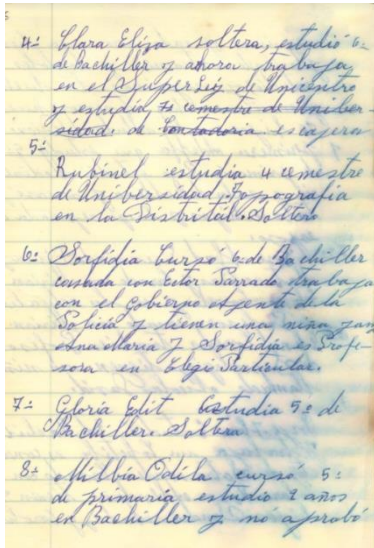 4º Clara Eliza soltera, estudió 6º
de Bachiller y ahora trabaja
en el Super Ley de Unicentro
y estudia 7s cemestre de Uniber-
sidad. de Contadoria es cajera
5º
Rubinel estudia 4 cemestre
de Unibersidad. Topografia
en la Distrital. Soltero
6º Sorfidia Cursó 6 de Bachiller
cassada con Estor Parrado trabaja
con el gobierno Agente de la
Policía y tienen una niña
Ana Maria y Sorfidia es Profe-
sora en Elegi Particular.
7º Gloria Edit Estudia 5º de
Bachiller. Soltera
8º Milbia Odila cursó 5º
de primaria estudio 2 años
en Bachiller y nó aprobó